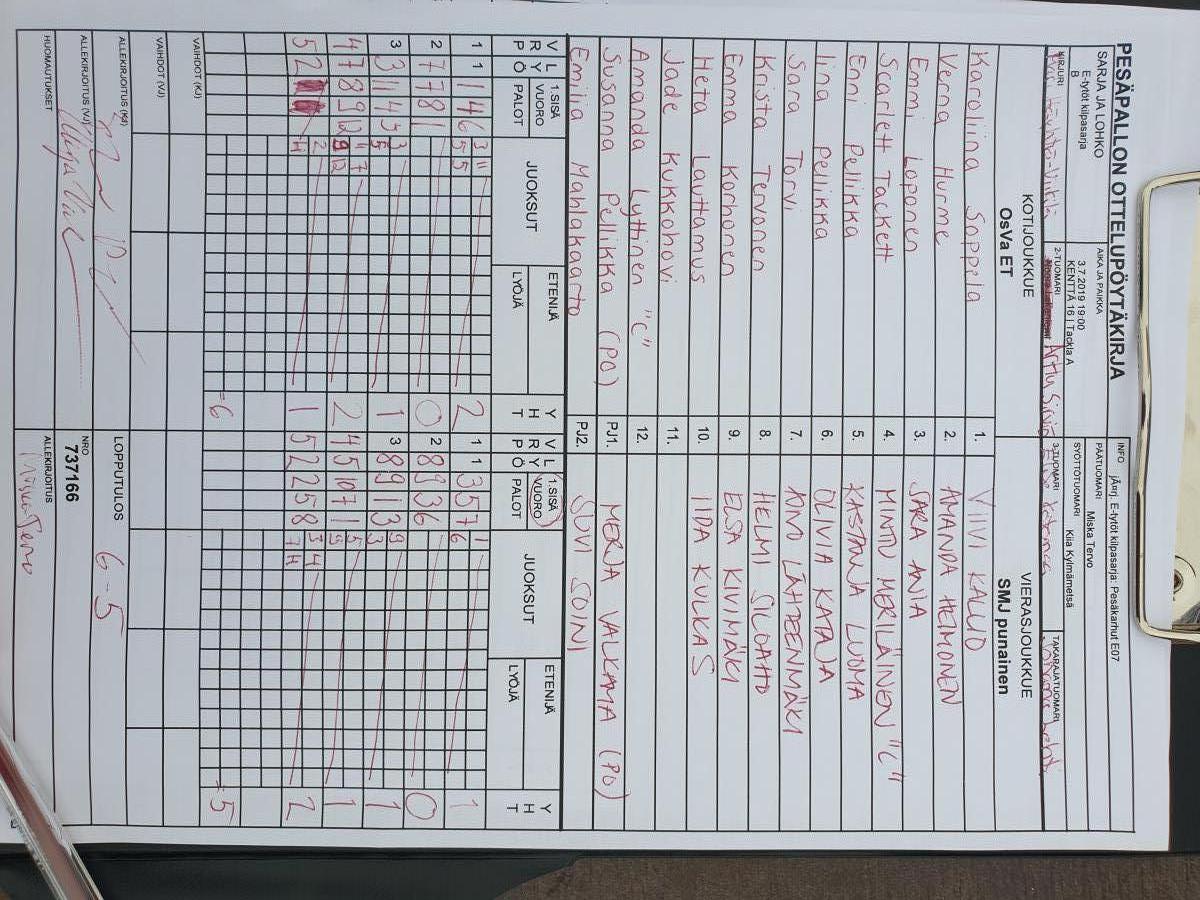 PESÄPALLON OTTELUPÖYTÄKIRJA
INFO jÃ¤rj. E-tytöt kilpasarja: Pesäkarhut E07
SARJA JA LOHKO
E-tytöt kilpasarja
B
AIKA JA PAIKKA
3.7.2019 19:00
KENTTÄ 16 | Tackla A
PÄÄTUOMARI Miska Tervo
SYÖTTÖTUOMARI Kiia Kylmämetsä
KIRJURI
2-TUOMARI
3-TUOMARI
TAKARAJATUOMARI
KOTIJOUKKUE
OsVa ET
VIERASJOUKKUE
SMJ punainen
Karoliina Soppela 1. VIIVI KALLIO
Verna Hurme 2. AMANDA HEIMONEN
Emmi Loponen 3. SARA ANIA
Scarlett Tackett 4. MINTTU MERILÄINEN "C"
Enni Pellikka 5. KASTANJA LUOMA
Iina Pellikka 6. OLIVIA KATAJA
Sara Torvi 7. AINO LÄHTEENMÄKI
Krista Tervonen 8. HELMI SILOAHO
Emma Korhonen 9. ELSA KIVIMÄKI
Heta Lauttamus 10. IIDA KULKAS
Jade Kukkohovi 11.
Amanda Lyttinen "C" 12.
Susanna Pellikka (PO) PJ1. MERJA VALKAMA (PO)
Emilia Mahlakaarto PJ2. SUVI SOINI
V P L Y R Ö 1.SISÄ VUORO PALOT JUOKSUT ETENIJÄ LYÖJÄ Y H T
V P L Y R Ö 1.SISÄ VUORO PALOT JUOKSUT ETENIJÄ LYÖJÄ Y H T
1 1 1 4 6 3 11 5 5 2
1 1 3 5 7 1 6 1
2 7 7 8 1 0
2 8 9 3 6 0
3 3 1 4 3 3 5 1
3 8 9 1 3 9 3 1
4 7 8 9 12 2
4 5 10 7 1 5 9 1
5 2 2 4 1
5 2 2 5 8 3 4 7 4 2
=6
=5
VAIHDOT (KJ)
VAIHDOT (VJ)
ALLEKIRJOITUS (KJ)
LOPPUTULOS 6-5
ALLEKIRJOITUS (VJ)
NRO
737166
HUOMAUTUKSET
ALLEKIRJOITUS
Miska Tervo